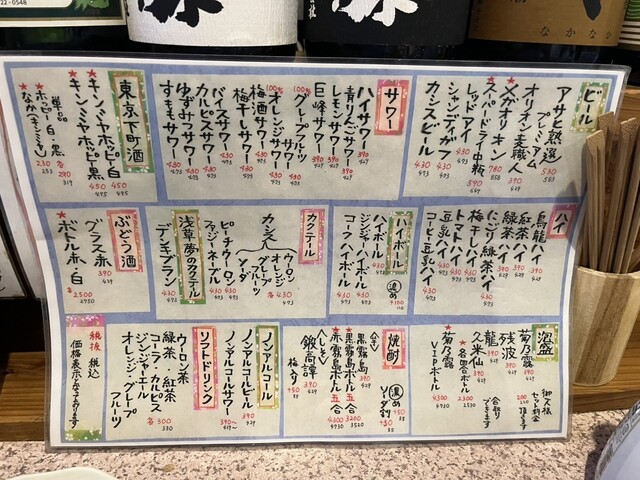 ビール
アサヒ熟選
プレミアム
530
583
オリオン麦職人
390
429
メガオリオン
780
858
スーパードライ中瓶
590
649
レッドアイ
430
473
シャンディガフ
430
473
カシスビール
430
473
サワー
ハイサワー
390
429
青りんごサワー
390
429
レモンサワー
390
429
巨峰サワー
390
429
100%
グレープフルーツサワー
430
473
100%
オレンジサワー
430
473
梅酒サワー
430
473
梅干しサワー
430
473
バイスサワー
430
473
カルピスサワー
430
473
ゆずみつサワー
430
473
すももサワー
430
473
東京下町酒
キンミヤホッピー白
450
495
キンミヤホッピー黒
450
495
単品
ホッピー白・黒
各290
319
なか(キンミヤ)
230
253
ハイ
烏龍ハイ
390
429
紅茶ハイ
390
429
緑茶ハイ
390
429
にごり緑茶ハイ
430
473
梅干しハイ
430
473
トマトハイ
430
473
豆乳ハイ
430
473
コーヒー豆乳ハイ
430
473
ハイボール
濃め
+100
110
ハイボール
430
473
ジンジャーハイボール
430
473
コークハイボール
430
473
カクテル
カシス
ウーロン
オレンジ
グレープ
ソーダ
各430
473
ピーチウーロン
430
473
ファジーネーブル
430
473
浅草夢のカクテル
デンキブラン
430
473
ぶどう酒
グラス赤
390
429
ボトル赤・白
各2500
2750
泡盛
菊乃露
390
429
残波
390
429
久米仙
390
429
龍
390
429
各四合ボトル
2300
2530
菊乃露
VIPボトル
4300
4730
御人様
セット料金
200
220
頂きます
合取り
できます
焼酎
濃め
+150
ソーダ割
+50
黒霧島
390
429
黒霧島ボトル五合
3200
3520
赤霧島ボトル五合
4300
4730
鍛高譚
390
429
ノンアルコール
ノンアルコールビール
390
429
ノンアルコールサワー
390〜
429
ソフトドリンク
ウーロン茶
緑茶・紅茶
コーラ・カルピス
ジンジャーエール
オレンジ・グレープフルーツ
各300
330
税抜 税込
価格表示となっております